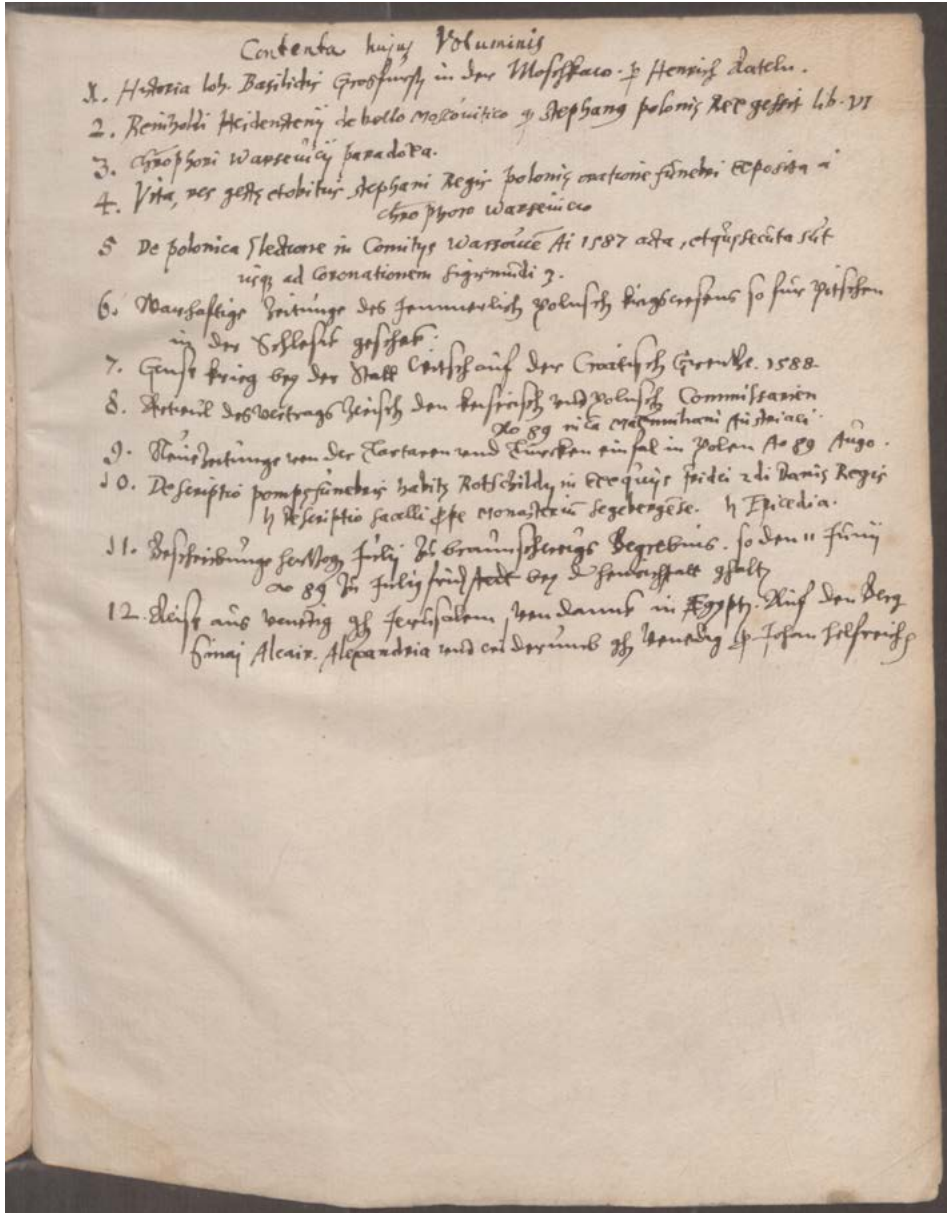 Contenta hujus Voluminis
1. Historia Ioh. Basilidis Grosfursten in der Moschkaw. p Henrich Rateln.
2. Reinholdi Heidenstenij de bello Moscovitico qd Stephanus polonię Rex gessit lib. VI
3. Chrophori Warsevicij paradoxa.
4. Vita, res gestę et obitus Stephani Regis polonię oratione funebri exposita a
Chrophoro Warsevicio
5 De polonica Electione in Comitijs Warsouicē Ai 1587 acta, et quę secuta sūt
usq ad Coronationem Sigismundi 3.
6. Warhaftige Zeitunge des Jemmerlich polnisch krigswesens so fur Pitschen
in der Schlesie gescheh.
7. krieg bey der Statt auf der Croatisch Grentze. 1588
8. Articul des vertrags zwisch den keiserisch und Polnisch Commissarien
Ao 89 in ca Maximiliani Austriaci.
9. Neue Zeitunge von der Tartaren und Turcken einfal in Polen Ao 89 Augo.
10. Descriptio pompę funebris habitę Rotschildij in Exequijs fridei 2di Danię Regis
h descriptio sacelli ppe Monasteriū Segebergēse. h Epicedia.
11. Beschreibunge hertzog Julij zu braunschweigs Begrebnis. so den 11 Junij
ao 89 zu bey d heinrichstatt ghalt
12. Reise aus venedig gh Jerusalem, von danne in Egypt. Auf den Berg
Sinaj Alcair. Alexandria und widerumb gh Venedig p Johan Helfreich